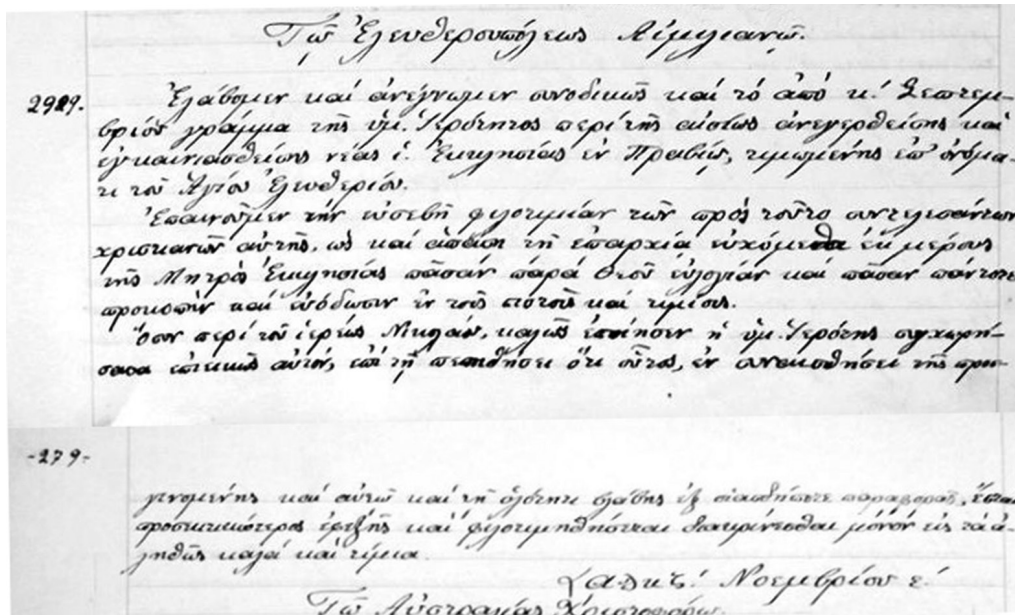 Τῷ Ἐλευθερουπόλεως Αἰμιλιανῷ.
2929. Ἐλάβομεν καί ἀνέγνωμεν συνοδικῶς καί τό ἀπό κ΄. Σεπτεμ-
βρίου γράμμα τῆς ὑμ. Ἱερότητος περί τῆς αἰσίως ἀνεγερθείσης καί
ἐγκαινιασθείσης νέας ἱ. Ἐκκλησίας ἐν Πραβίῳ, τιμωμένης ἐπ' ὀνόμα-
τι τοῦ Ἁγίου Ἐλευθερίου.
Ἐπαινοῦμεν τήν εὐσεβῆ φιλοτιμίαν τῶν πρός τοῦτο συντελεσάντων
χριστιανῶν αὐτῆς, ὡς καί ἁπάσῃ τῇ ἐπαρχίᾳ εὐχόμεθα ἐκ μέρους
τῆς Μητρός Ἐκκλησίας πᾶσαν παρά Θεοῦ εὐλογίαν καί πᾶσαν πάντοτε
προκοπήν καί εὐόδωσιν ἐν τοῖς πιστοῖς καί τιμίοις.
Ὅσον περί τοῦ ἱερέως Μιχαήλ, καλῶς ἐποίησεν ἡ ὑμ. Ἱερότης συγχωρή-
σασα ἐπιεικῶς αὐτόν, ἐπί τῇ πεποιθήσει ὅτι οὗτος, ἐν συναισθήσει τῆς προσ-
-279-
γινομένης καί αὐτῷ καί τῇ ὁλότητι βλάβης ἐξ οἱασδήποτε παραφορᾶς, ἔσται
προσεκτικώτερος ἐφεξῆς καί φιλοτιμηθήσεται διακρίνεσθαι μόνον εἰς τά ἀ-
ληθῶς καλά καί τίμια.
͵αϡκζ΄. Νοεμβρίου ε΄.
Τῷ Αὐστραλίας Χριστοφόρῳ.